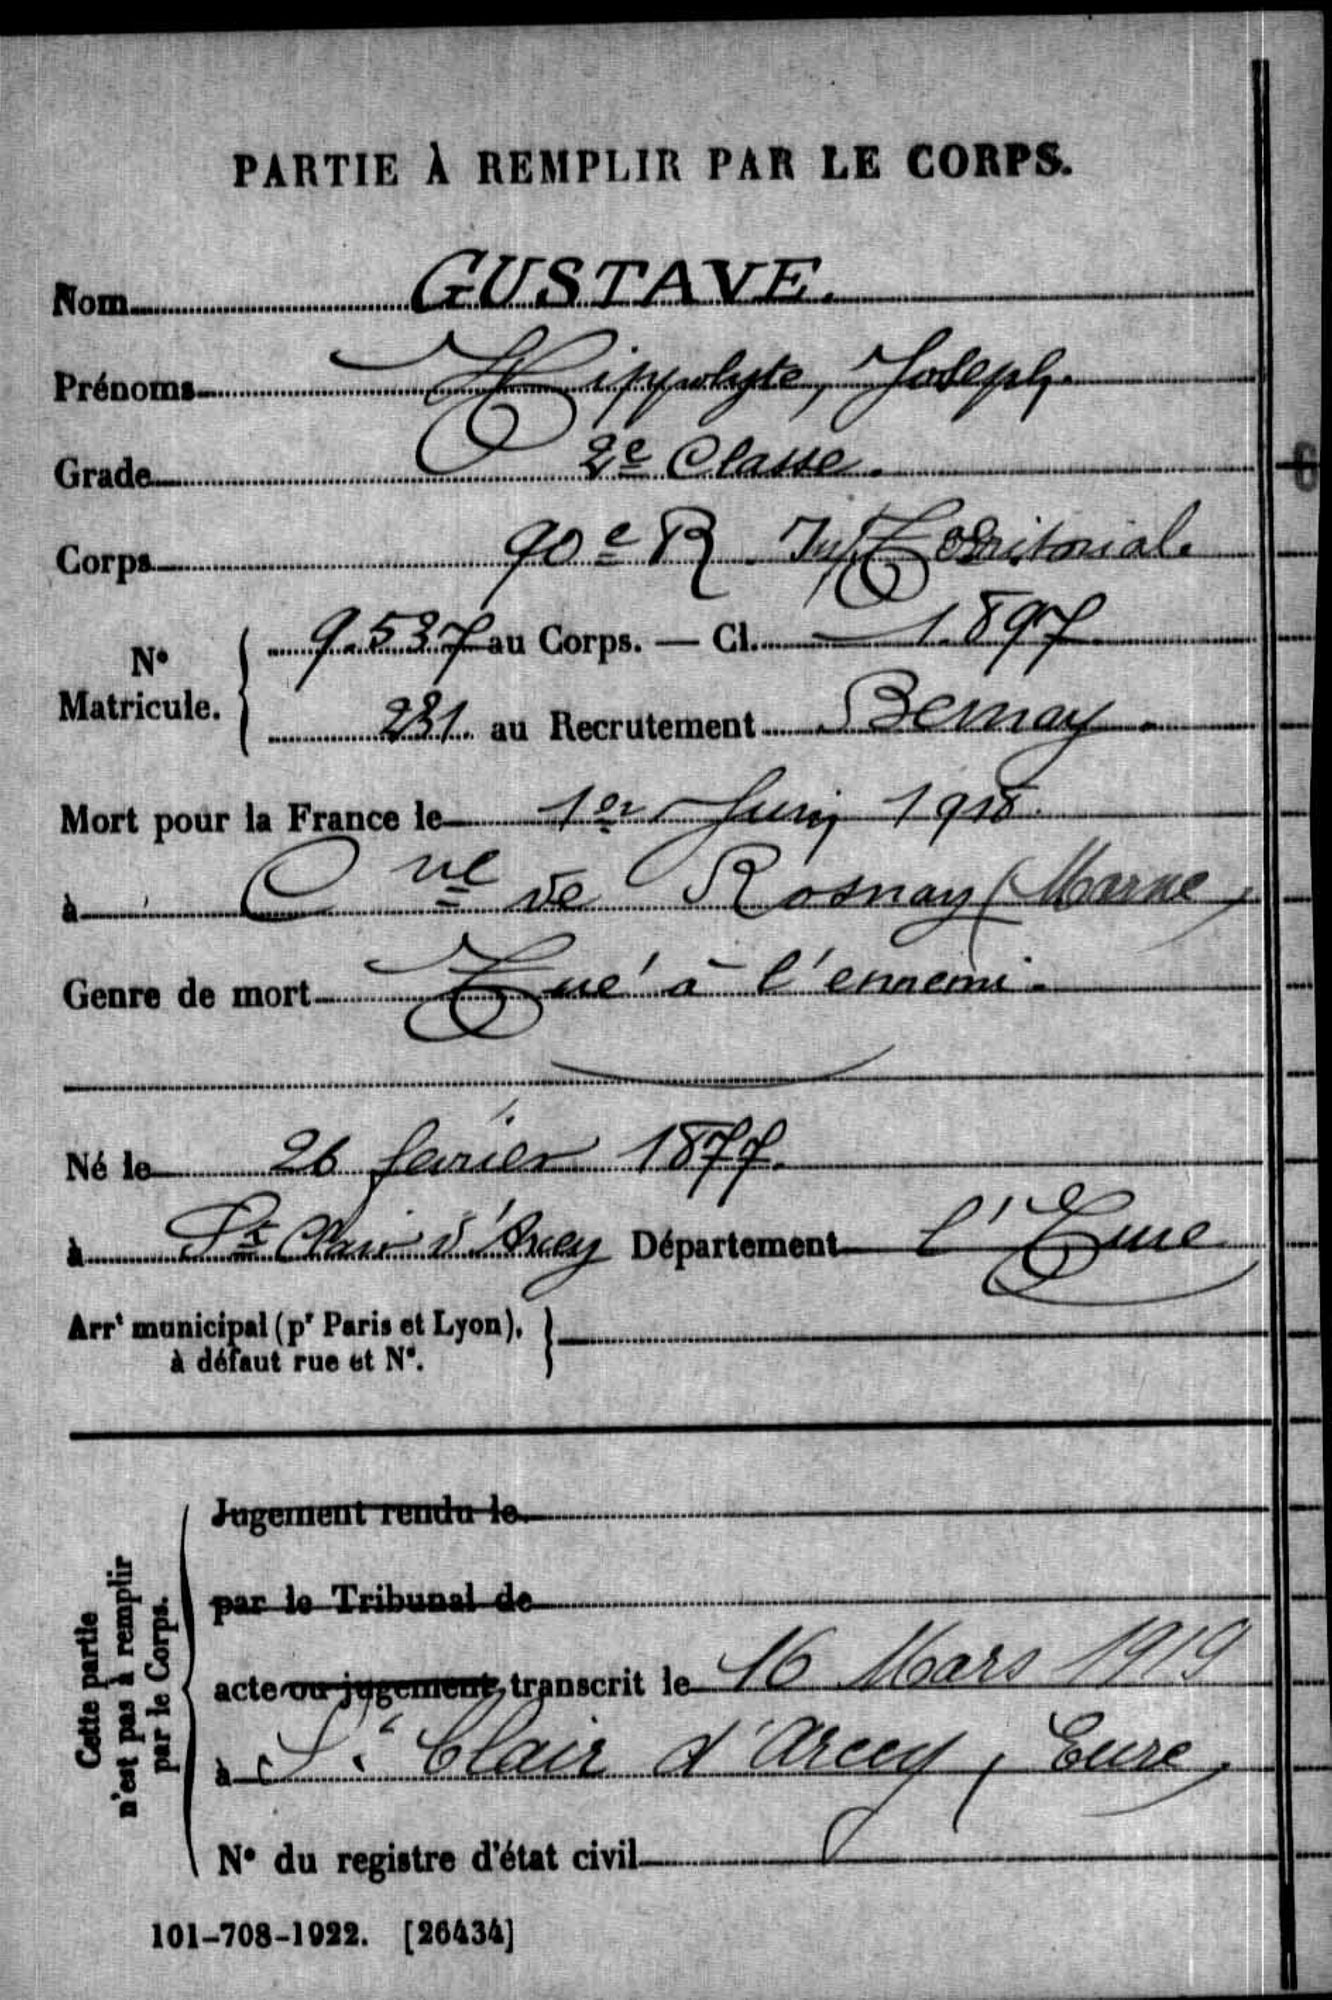 PARTIE À REMPLIR PAR LE CORPS.
Nom GUSTAVE.
Prénoms Hippolyte, Joseph.
Grade 2e Classe.
Corps 90e R Inf Territorial.
N° Matricule. { 9.537 au Corps. — Cl. 1897
231. au Recrutement Bernay.
Mort pour la France le 1er Juin 1918.
à Cne de Rosnay (Marne)
Genre de mort Tué à l'ennemi.
Né le 26 février 1877.
à St Clair d'Arcey Département l'Eure
Arrt municipal (pr Paris et Lyon), }
à défaut rue et N°.
Cette partie
n'est pas à remplir
par le Corps.
Jugement rendu le
par le Tribunal de
acte ou jugement transcrit le 16 Mars 1919
à St Clair d'Arcey, Eure,
N° du registre d'état civil
101-708-1922. [26434]